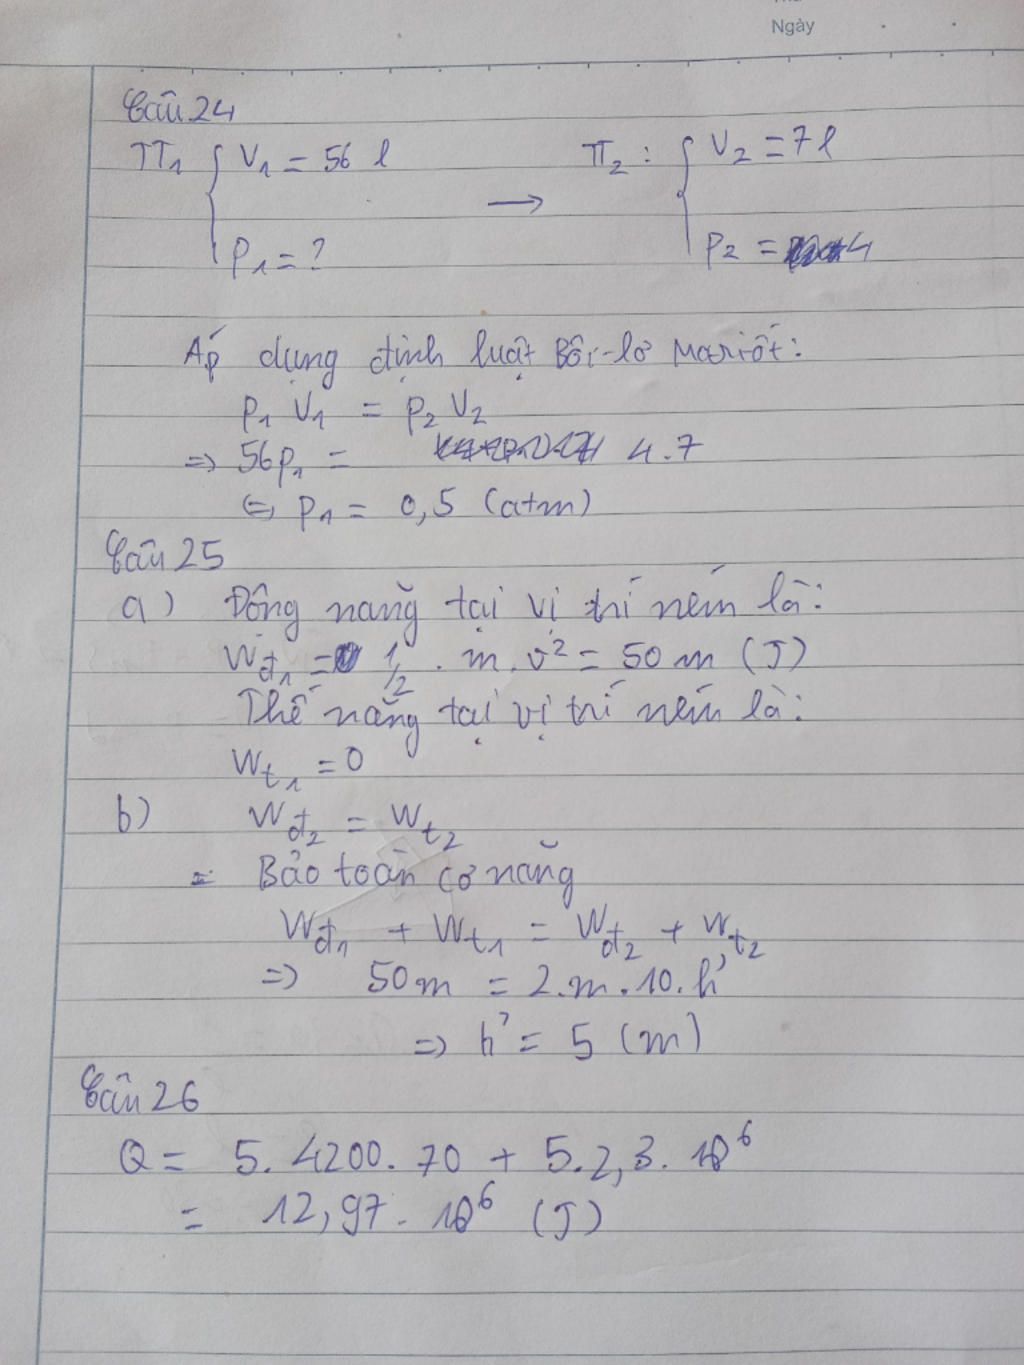 Ngày
Câu 24
TT₁ { V₁ = 56 l → TT₂ : { V₂ = 7 l
P₁ = ? P₂ = 4
Áp dụng định luật Bôi-lơ Mariốt:
P₁ V₁ = P₂ V₂
=> 56p₁ = 4.7
<=> P₁ = 0,5 (atm)
Câu 25
a) Động năng tại vị trí ném là:
Wđ₁ = 1/2 . m. v² = 50 m (J)
Thế năng tại vị trí ném là:
Wt₁ = 0
b) Wđ₂ = Wt₂
= Bảo toàn cơ năng
Wđ₁ + Wt₁ = Wđ₂ + Wt₂
=> 50m = 2.m.10.h'
=> h' = 5 (m)
Câu 26
Q = 5. 4200. 70 + 5.2,3. 10⁶
= 12,97. 10⁶ (J)